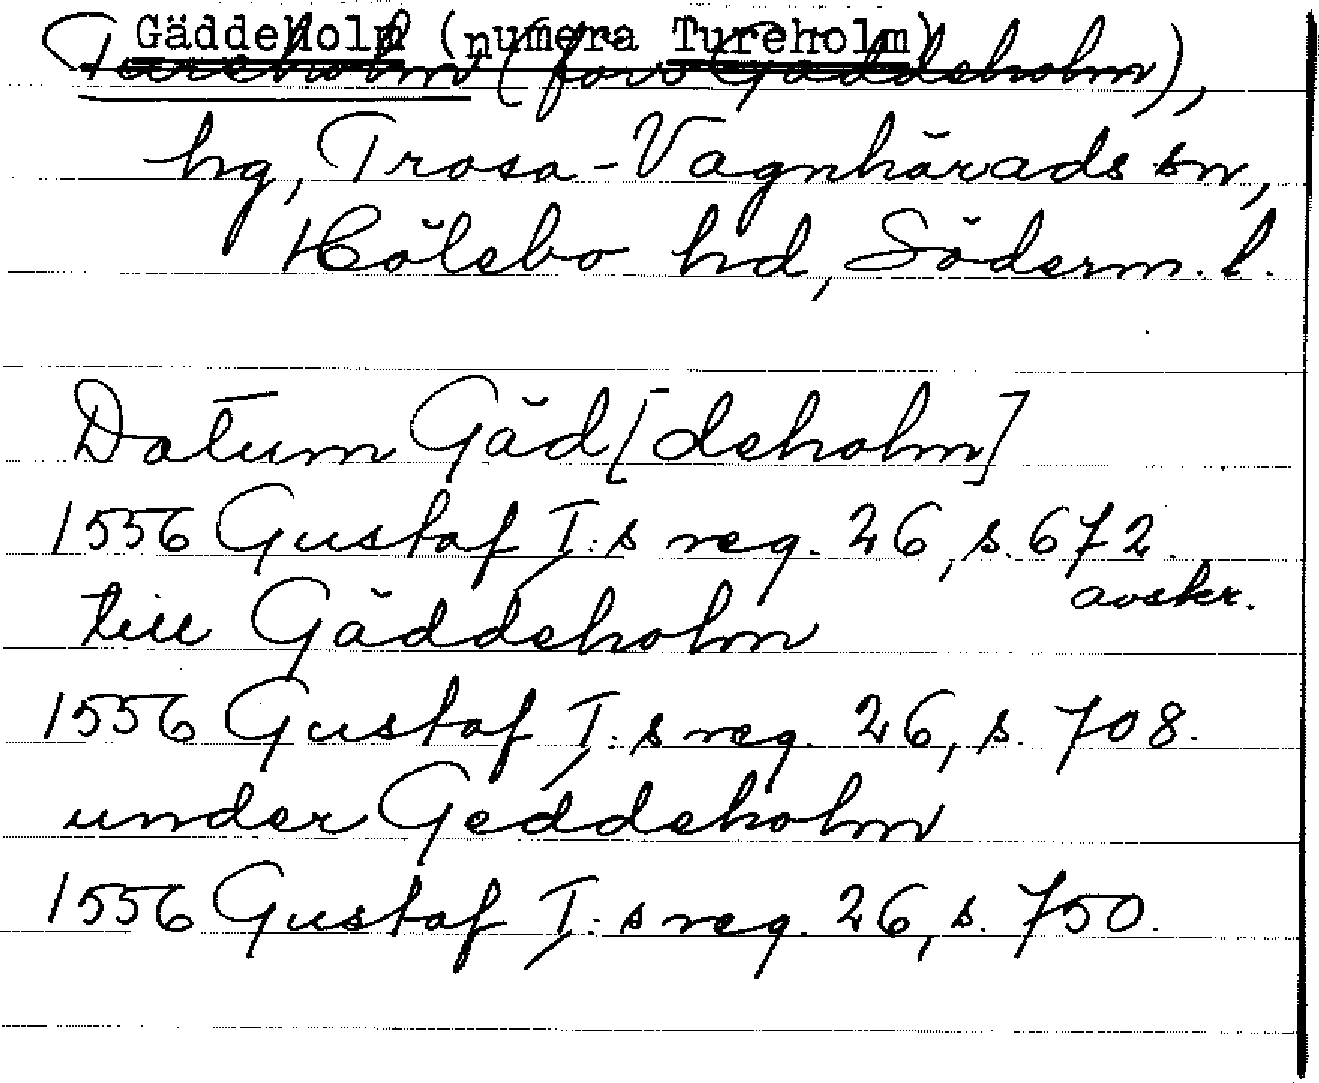 Gäddeholm (numera Tureholm)
Tureholm (förr Gäddeholm),
hg, Trosa-Vagnhärads sn,
Hölebo hd, Söderm. l.
Datum Gäd[deholm]
1556 Gustaf I:s reg. 26, s. 672.
avskr.
till Gäddeholm
1556 Gustaf I:s reg. 26, s. 708.
under Geddeholm
1556 Gustaf I:s reg. 26, s. 750.